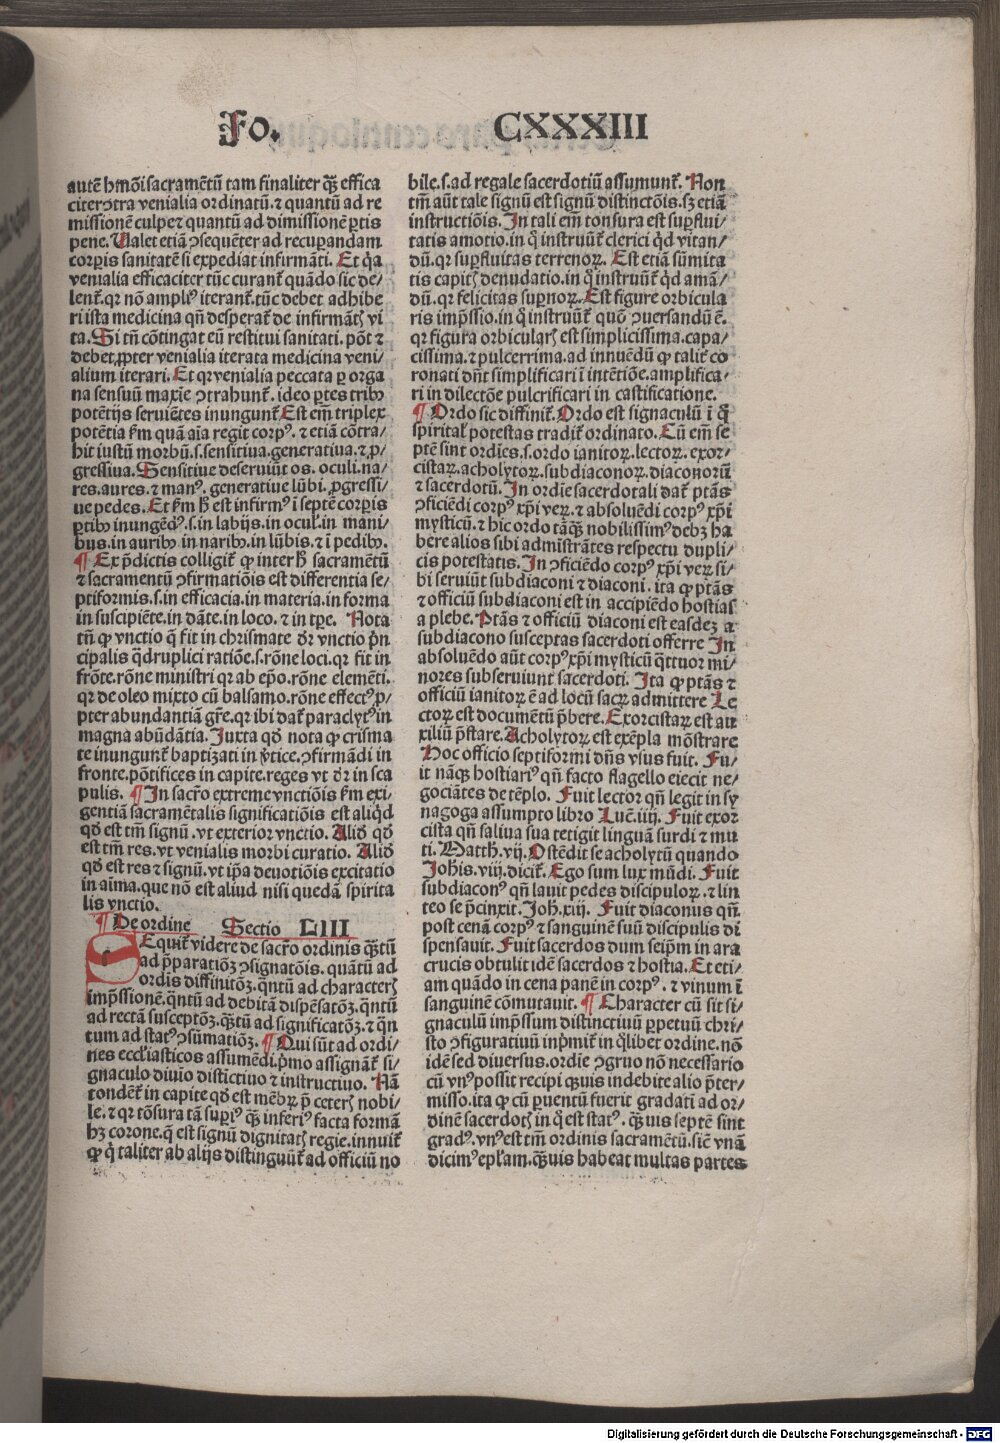 Fo. CXXXIII
autē hmōi sacramētū tam finaliter q̄ꝫ effica
citer ꝯtra venialia ordinatū. ⁊ quantū ad re
missionē culpe ⁊ quantū ad dimissionē ꝑtis
pene. Ualet etiā ꝯsequēter ad recuꝑandam
corꝑis sanitatē si expediat infirmāti. Et q̄a
venialia efficaciter tūc curant᷑ quādo sic de/
lent᷑. qꝛ nō ampliꝰ iterant᷑. tūc debet adhibe
ri ista medicina qn̄ desperat᷑ de infirmātꝭ vi
ta. Si tn̄ cōtingat eū restitui sanitati. pōt ⁊
debet ꝓpter venialia iterata medicina veni/
alium iterari. Et qꝛ venialia peccata ꝑ orga
na sensuū maxīe ꝯtrahunt᷑. ideo ꝑtes tribꝰ
potētijs seruiētes inungunt᷑ Est em̄ triplex
potētia ẜm quā aīa regit corpꝰ. ⁊ etiā cōtra/
hit iustū morbū. s. sensitiua. generatiua. ⁊ ꝓ/
gressiua. Sensitiue deseruiūt os. oculi. na/
res. aures. ⁊ manꝰ. generatiue lūbi. ꝓgressi/
ue pedes. Et ẜm hͦ est infirmꝰ ī septē corꝑis
ꝑtibꝰ inungēdꝰ. s. in labijs. in ocul᷑. in mani/
bus. in auribꝰ in naribꝰ. in lūbis. ⁊ ī pedibꝰ.
¶ Ex p̄dictis colligit᷑ ꝙ inter hͦ sacramētū
⁊ sacramentū ꝯfirmatiōis est differentia se/
ptiformis. s. in efficacia. in materia. in forma
in suscipiēte. in dāte. in loco. ⁊ in tꝑe. Nota
tn̄ ꝙ vnctio q̄ fit in chrismate dr̄ vnctio p̄n
cipalis q̄druplici ratiōe. s. rōne loci. qꝛ fit in
frōte. rōne ministri qꝛ ab ep̄o. rōne elemēti.
qꝛ de oleo mixto cū balsamo. rōne effectꝰ ꝓ/
pter abundantiā gr̄e. qꝛ ibi dat᷑ paraclytꝰ in
magna abūdātia. Juxta qd̄ nota ꝙ crisma
te inungunt᷑ baptizati in v̓tice. ꝯfirmādi in
fronte. pōtifices in capite. reges vt dr̄ in sca
pulis. ¶ In sacr̄o extreme vnctiōis ẜm exi/
gentiā sacramētalis significatiōis est aliqd̄
qd̄ est tm̄ signū. vt exterior vnctio. Aliꝗd qd̄
est tm̄ res. vt venialis morbi curatio. Aliꝗd
qd̄ est res ⁊ signū. vt ip̄a deuotiōis excitatio
in aīma. que nō est aliud nisi quedā spirita
lis vnctio.
¶ De ordine Sectio LIII
SEquit᷑ videre de sacr̄o ordinis q̄ꝫtū
ad p̄paratiōꝫ ꝯsignatōis. quātū ad
ordīs diffinitōꝫ. q̄ntū ad characterꝭ
imp̄ssionē. q̄ntū ad debitā dispēsatōꝫ. q̄ntū
ad rectā susceptōꝫ. q̄ꝫtū ad significatōꝫ. ⁊ q̄n
tum ad statꝰ ꝯsūmatiōꝫ. ¶ Qui sūt ad ordi/
nes eccl̓iasticos assumēdi. p̄mo assignāt᷑ si/
gnaculo diuīo distīctiuo ⁊ instructiuo. Nā
tondēt᷑ in capite qd̄ est mēbꝝ p̄ ceterꝭ nobi/
le. ⁊ qꝛ tōsura tā suꝑiꝰ q̄ꝫ inferiꝰ facta formā
hꝫ corone. q̄ est signū dignitatꝭ regie. innuit᷑
ꝙ q̇ taliter ab alijs distinguūt᷑ ad officiū no
bile. s. ad regale sacerdotiū assumunt᷑. Non
tm̄ aūt tale signū est signū distinctōis. sꝫ etiā
instructiōis. In tali em̄ tonsura est suꝑflui/
tatis amotio. in q̄ instruūt᷑ clerici qd̄ vitan/
dū. qꝛ suꝑfluitas terrenoꝝ. Est etiā sūmita
tis capitꝭ denudatio. in q̄ instruūt᷑ qd̄ amā/
dū. qꝛ felicitas suꝑnoꝝ. Est figure orbicula
ris imp̄ssio. in q̄ instruūt᷑ quō ꝯuersandū ē.
qꝛ figura orbicularꝭ est simplicissima. capa/
cissima. ⁊ pulcerrima. ad innuēdū ꝙ talit᷑ co
ronati dn̄t simplificari ī intētiōe. amplifica/
ri in dilectōe pulcrificari in castificatione.
¶ Ordo sic diffinit᷑. Ordo est signaculū ī q̄
spirital᷑ potestas tradit᷑ ordinato. Cū em̄ se
ptē sint ordīes. s. ordo ianitoꝝ. lectoꝝ. exor/
cistaꝝ. acholytoꝝ. subdiaconoꝝ. diaconorū
⁊ sacerdotū. In ordīe sacerdotali dat᷑ ptās
ꝯficiēdi corpꝰ xp̄i veꝝ. ⁊ absoluēdi corpꝰ xp̄i
mysticū. ⁊ hic ordo tāq̄ꝫ nobilissimꝰ debꝫ ha
bere alios sibi admīstrātes respectu dupli/
cis potestatis. In ꝯficiēdo corpꝰ xp̄i veꝝ si/
bi seruiūt subdiaconi ⁊ diaconi. ita ꝙ ptās
⁊ officiū subdiaconi est in accipiēdo hostias
a plebe. Ptās ⁊ officiū diaconi est easdeꝫ a
subdiacono susceptas sacerdoti offerre In
absoluēdo aūt corpꝰ xp̄i mysticū q̄ttuor mi/
nores subseruiunt sacerdoti. Ita ꝙ ptās ⁊
officiū ianitoꝝ ē ad locū sacꝝ admittere Le
ctoꝝ est documētū p̄bere. Exorcistaꝝ est au
xiliū p̄stare. Acholytoꝝ est exēpla mōstrare
Hoc officio septiformi dn̄s vsus fuit. Fu/
it nāq̄ꝫ hostiariꝰ qn̄ facto flagello eiecit ne/
gociātes de tēplo. Fuit lector qn̄ legit in sy
nagoga assumpto libro Luc̄. iiij. Fuit exor
cista qn̄ saliua sua tetigit linguā surdi ⁊ mu
ti. Matth. vij. Ostēdit se acholytū quando
Joh̄is. viij. dicit᷑. Ego sum lux mūdi. Fuit
subdiaconꝰ qn̄ lauit pedes discipuloꝝ. ⁊ lin
teo se p̄cinxit. Joh̄. xiij. Fuit diaconus qn̄
post cenā corpꝰ ⁊ sanguinē suū discipulis di
spensauit. Fuit sacerdos dum seip̄m in ara
crucis obtulit idē sacerdos ⁊ hostia. Et eti/
am quādo in cena panē in corpꝰ. ⁊ vinum ī
sanguinē cōmutauit. ¶ Character cū sit si/
gnaculū imp̄ssum distinctiuū ꝑpetuū chri/
sto ꝯfiguratiuū inp̄mit᷑ in q̄libet ordine. nō
idē sed diuersus. ordīe ꝯgruo nō necessario
cū vnꝰ possit recipi q̄uis indebite alio p̄ter/
misso. ita ꝙ cū ꝑuentū fuerit gradatī ad or/
dinē sacerdotꝭ in q̄ est statꝰ. q̄ꝫuis septē sint
gradꝰ. vnꝰ est tm̄ ordinis sacramētū. sic̄ vnā
dicimꝰ epl̓am. q̄ꝫuis habeat multas partes
Digitalisierung gefördert durch die Deutsche Forschungsgemeinschaft - DFG